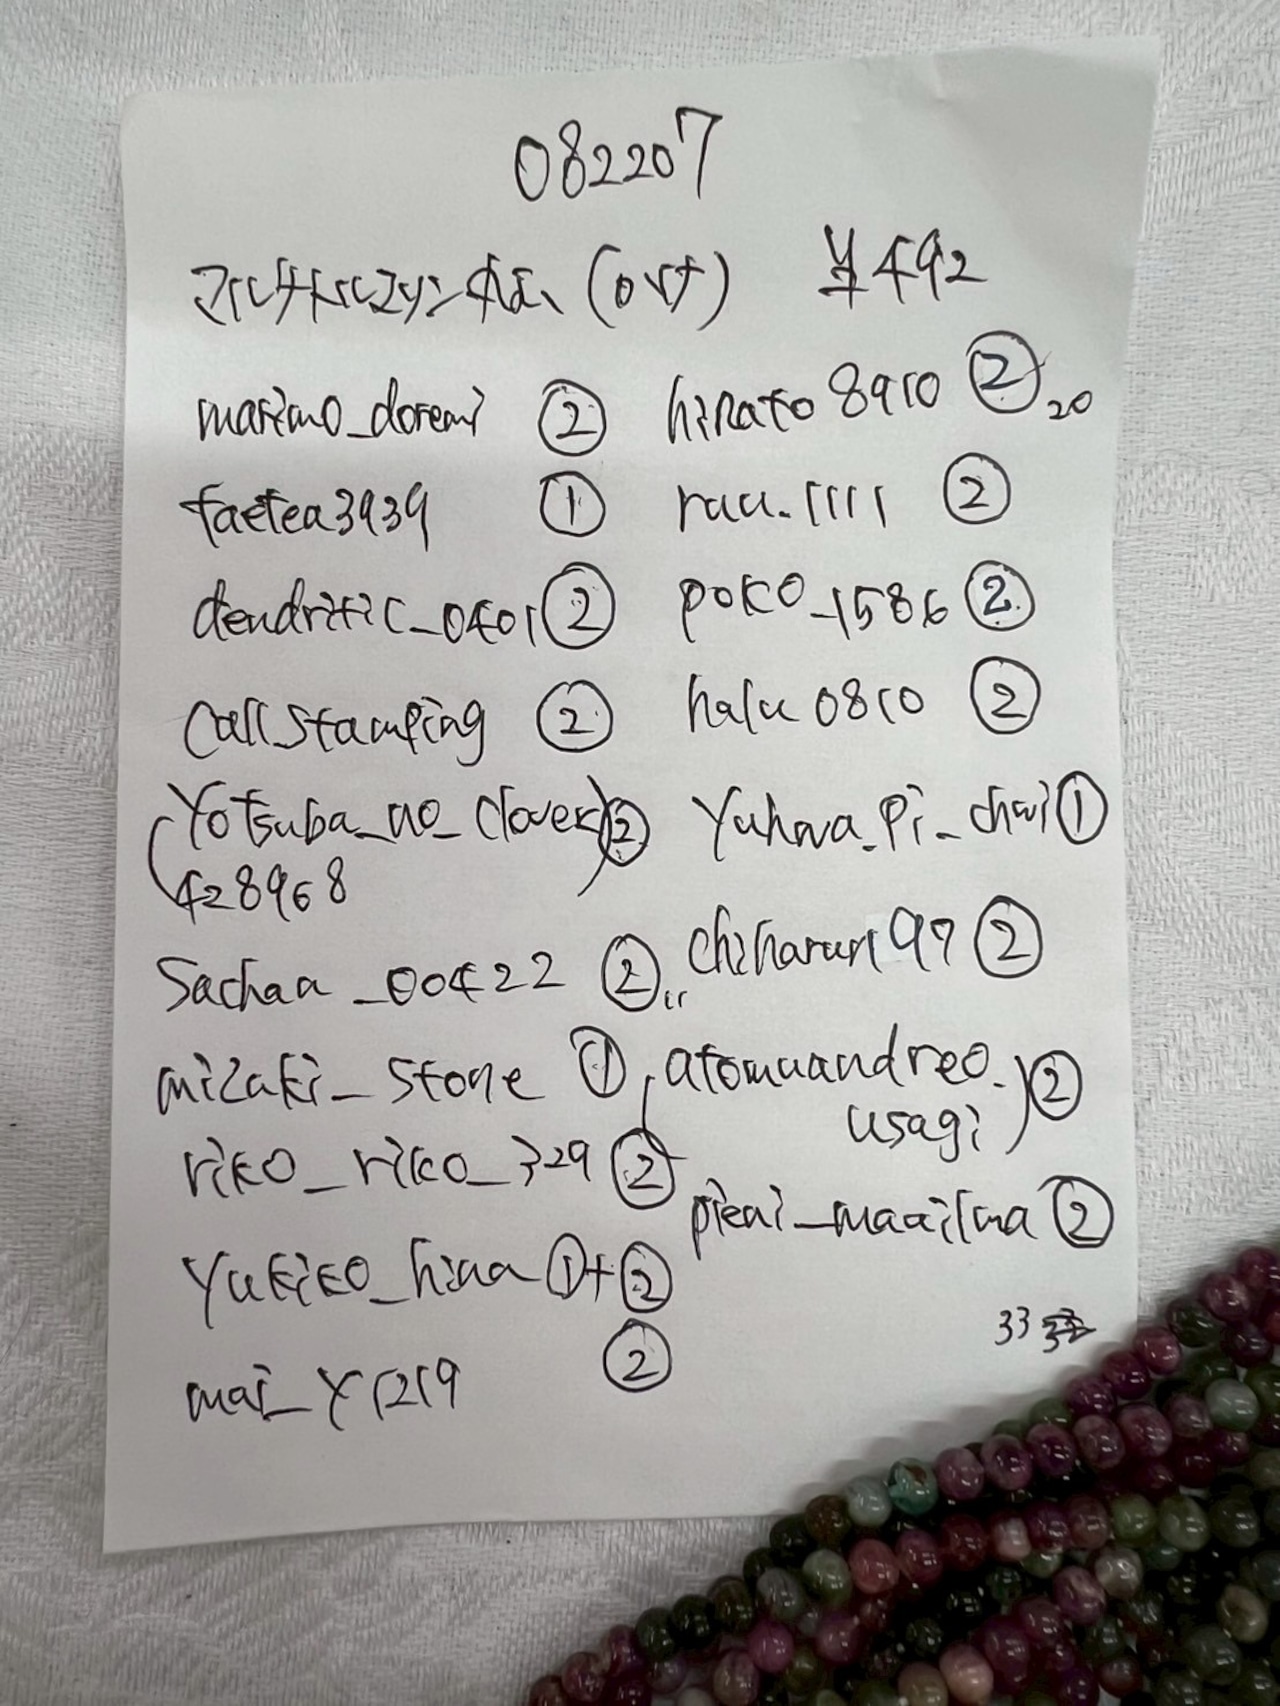 082207
マルチトルマリン (ロンデル) ¥492
marimo_doremi ②
faetea3939 ①
dendritic_0401 ②
callstamping ②
(Yotsuba_no_clover) ②
428968
Sachaa_00422 ②
mizuki_stone ①
riko_riko_329 ②
Yukiko_hina ①+②
mai_y1219 ②
hinato8910 ② 20
ruu.1111 ②
poko_1586 ②
halu0810 ②
Yuhwa.pi_chwi ①
chiharun97 ②
(atomuandreo. ) ②
usagi
pieni_maailma ②
33